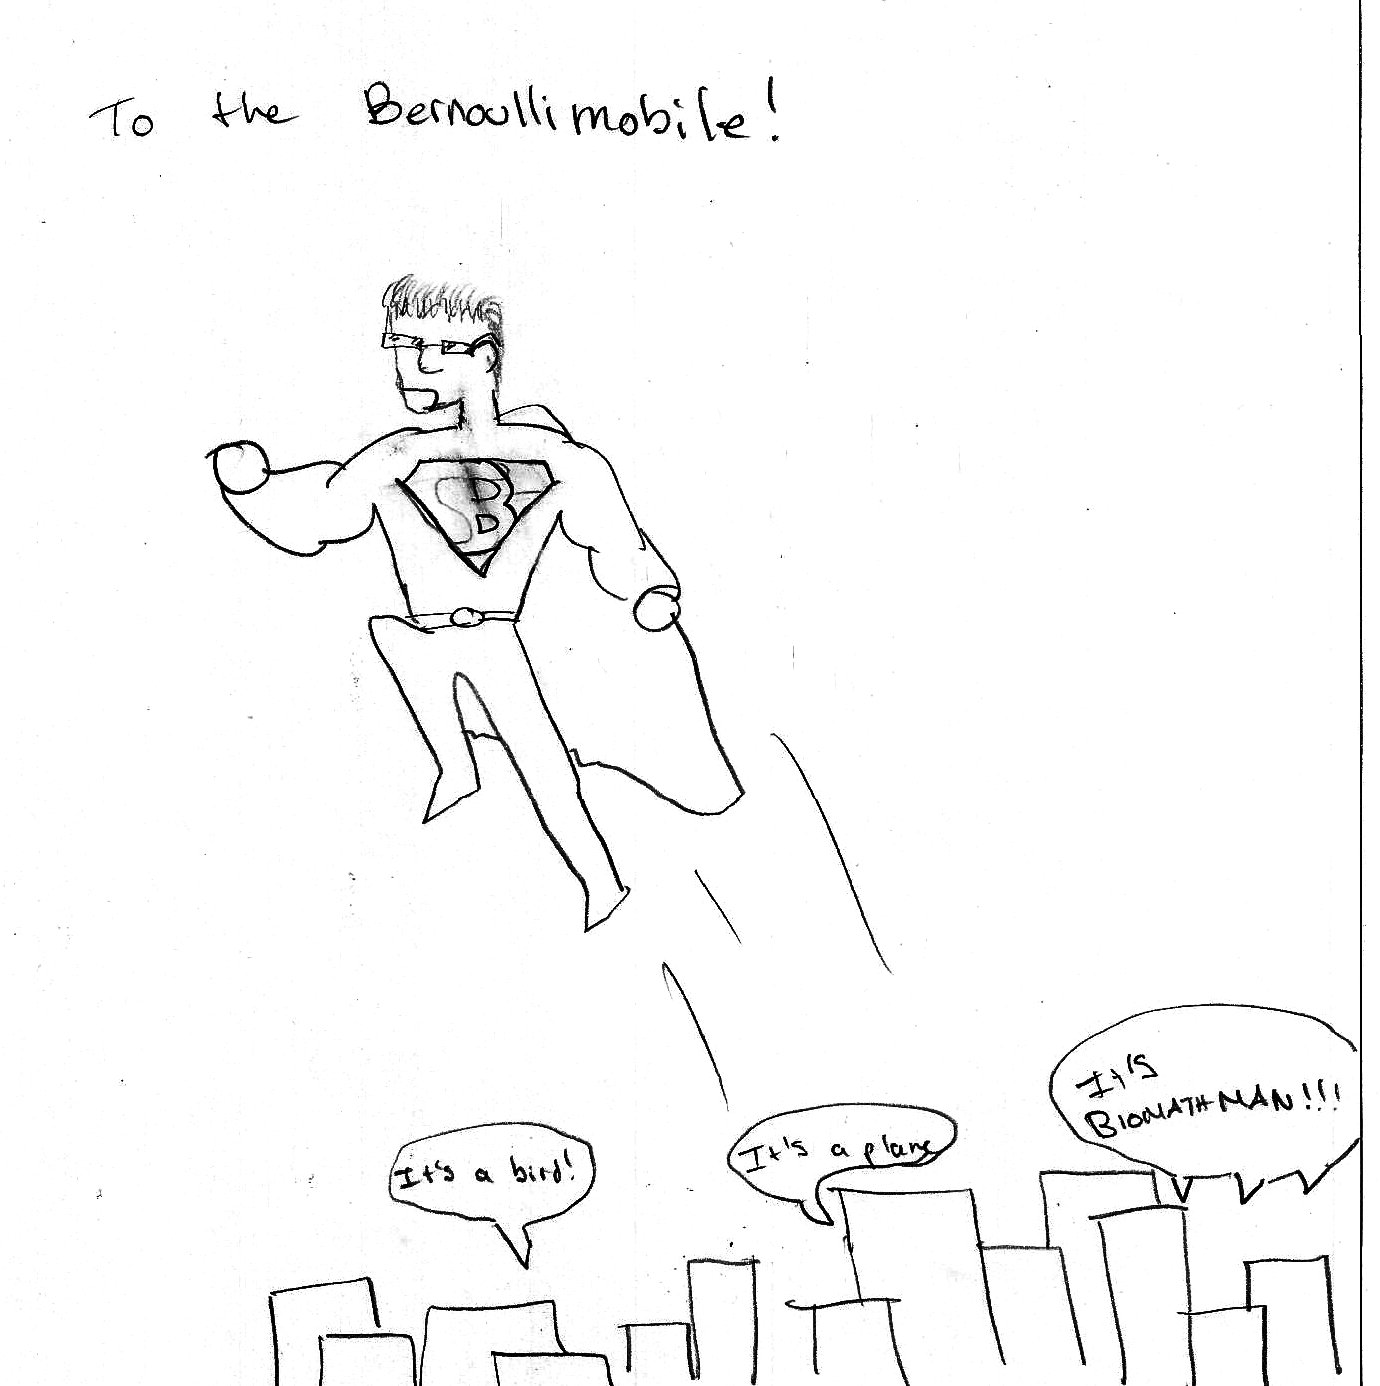 To the Bernoullimobile!
B
It's a bird!
It's a plane
It's
BIOMATHMAN!!!